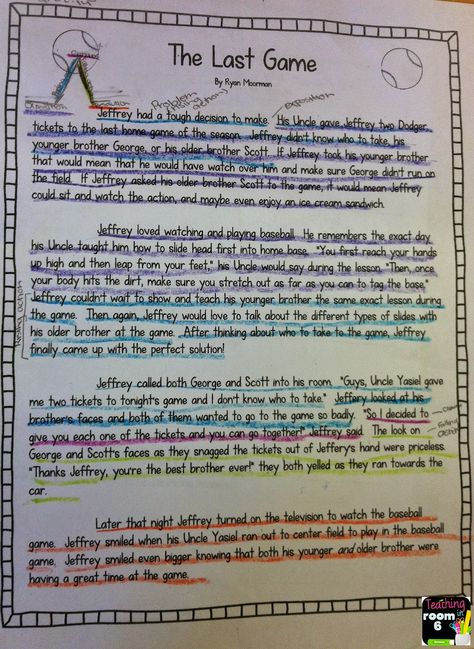 The Last Game
By Ryan Moorman
Climax
Exposition
Resolution
Problem
Rising action
exposition
Jeffrey had a tough decision to make. His Uncle gave Jeffrey two Dodger
tickets to the last home game of the season. Jeffrey didn't know who to take, his
younger brother George, or his older brother Scott. If Jeffrey took his younger brother
that would mean that he would have watch over him and make sure George didn't run on
the field. If Jeffrey asked his older brother Scott to the game, it would mean Jeffrey
could sit and watch the action, and maybe even enjoy an ice cream sandwich.
Jeffrey loved watching and playing baseball. He remembers the exact day
his Uncle taught him how to slide head first into home base. "You first reach your hands
up high and then leap from your feet," his Uncle would say during the lesson. "Then, once
your body hits the dirt, make sure you stretch out as far as you can to tag the base."
Jeffrey couldn't wait to show and teach his younger brother the same exact lesson during
the game. Then again, Jeffrey would love to talk about the different types of slides with
his older brother at the game. After thinking about who to take to the game, Jeffrey
finally came up with the perfect solution!
Rising action
Jeffrey called both George and Scott into his room. "Guys, Uncle Yasiel gave
me two tickets to tonight's game and I don't know who to take." Jeffery looked at his
brother's faces and both of them wanted to go to the game so badly. "So I decided to
give you each one of the tickets and you can go together!" Jeffrey said. The look on
falling action
George and Scott's faces as they snagged the tickets out of Jeffery's hand were priceless.
"Thanks Jeffrey, you're the best brother ever!" they both yelled as they ran towards the
car.
Later that night Jeffrey turned on the television to watch the baseball
game. Jeffrey smiled when his Uncle Yasiel ran out to center field to play in the baseball
game. Jeffrey smiled even bigger knowing that both his younger and older brother were
having a great time at the game.
Teaching
in
room
6